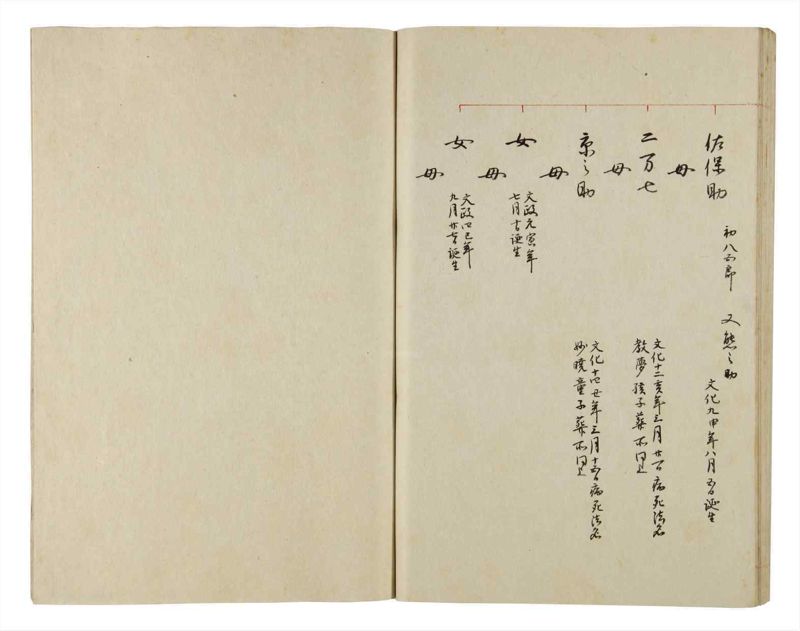 佐保助
初八五郎 又熊之助
文化九申年八月五日誕生
母
二万七
文化十二亥年三月廿 日病死法名
教夢孩子葬所同
母
京之助
文化十四丑年三月十五日病死法名
妙暁童子葬所同
母
女
文政元寅年
七月 誕生
母
女
文政四巳年
九月廿 誕生
母